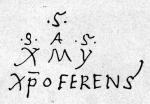 .S.
.S. A .S.
X M Y
Xp̄oFERENS